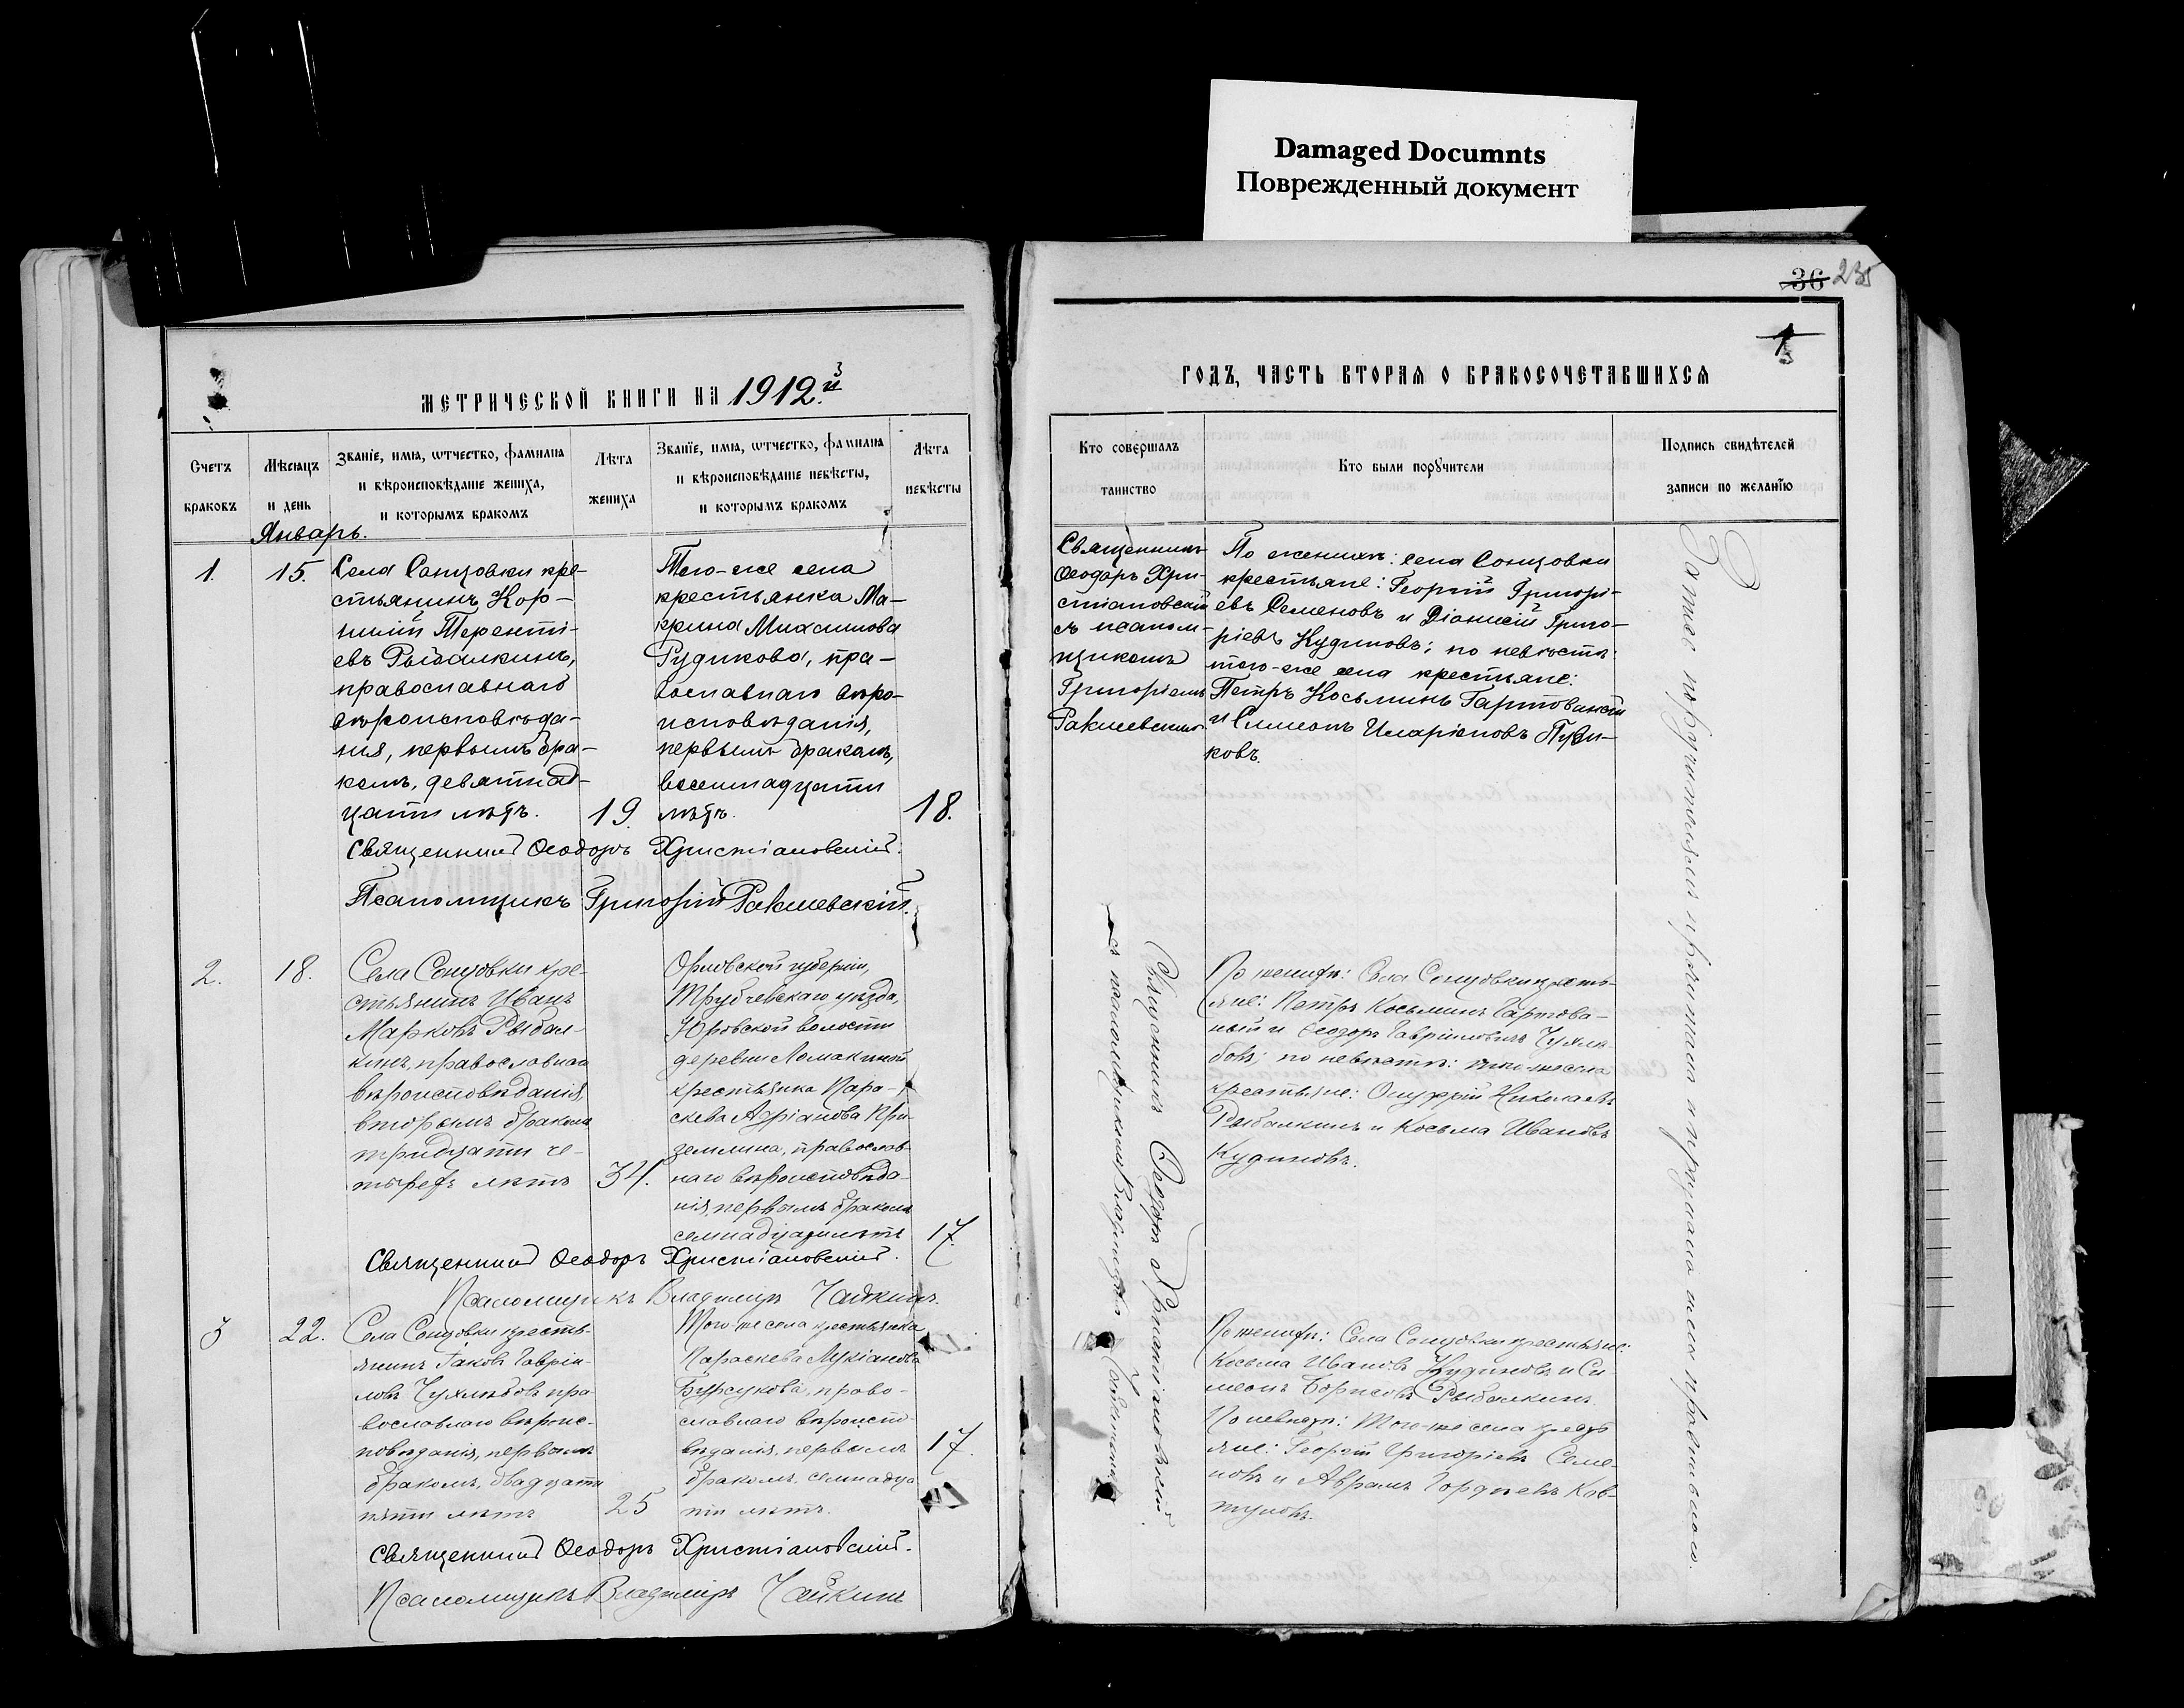 Damaged Documnts
Поврежденный документ
36 235
1
МЕТРИЧЕСКОЙ КНИГИ НА 1912й
3
ГОДЪ, ЧАСТЬ ВТОРАЯ О БРАКОСОЧЕТАВШИХСЯ
Счетъ браковъ
Мѣсяцъ и день
Званіе, имя, ѡтчество, фамилія
и вѣроисповѣданіе жениха,
и которымъ бракомъ
Лѣта жениха
Званіе, имя, ѡтчество, фамилія
и вѣроисповѣданіе невѣсты,
и которымъ бракомъ
Лѣта невѣсты
Кто совершалъ
таинство
Кто были порꙋчители
Подпись свидѣтелей
записи по желанїю
Январь.
1.
15.
Села Сонцовки кре-
стьянинъ Кор-
нилій Теренті-
евъ Рыбалкинъ,
православнаго
вѣроисповѣда-
нія, первымъ бра-
комъ, девятнад-
цати лѣтъ.
19.
Того-же села
крестьянка Ма-
крина Михаилова
Рудикова, пра-
вославнаго вѣро-
исповѣданія,
первымъ бракомъ,
восемнадцати
лѣтъ.
18.
Священникъ
Ѳеодоръ Хри-
стіановскій
съ псалом-
щикомъ
Григоріемъ
Ракшевскимъ.
По женихѣ: села Сонцовки
крестьяне: Георгій Григорі-
евъ Семеновъ и Діонисій Григо-
ріевъ Кудиновъ; по невѣстѣ:
того-же села крестьяне:
Петръ Косьминъ Гартованый
и Симеонъ Иларіоновъ Пузи-
ковъ.
Священникъ Ѳеодоръ Христіановскій.
Псаломщикъ Григорій Ракшевскій.
2.
18.
Села Сонцовки кре-
стьянинъ Иванъ
Марковъ Рыбал-
кинъ, православнаго
вѣроисповѣданія,
вторымъ бракомъ
тридцати че-
тырехъ лѣтъ
34.
Орловской губерніи,
Трубчевскаго уѣзда,
Юровской волости
деревни Ломакиной
крестьянка Пара-
скева Адріанова При-
землина, православ-
наго вѣроисповѣда-
нія, первымъ бракомъ
семнадцати лѣтъ
17.
По женихѣ: Села Сонцовки кресть-
яне: Петръ Косьминъ Гартова-
ный и Ѳеодоръ Гавріиловъ Чухлѣ-
бовъ; по невѣстѣ: того-же села
крестьяне: Онуфрій Николаевъ
Рыбалкинъ и Косьма Ивановъ
Кудиновъ.
Священникъ Ѳеодоръ Христіановскій.
Псаломщикъ Владиміръ Чайкинъ.
3
22.
Села Сонцовки кресть-
янинъ Іаковъ Гавріи-
ловъ Чухлѣбовъ пра-
вославнаго вѣроис-
повѣданія, первымъ
бракомъ, двадцати
пяти лѣтъ
25
Того-же села крестьянка
Параскева Лукіанова
Бурсукова, право-
славнаго вѣроиспо-
вѣданія, первымъ
бракомъ, семнадца-
ти лѣтъ.
17.
Священникъ Ѳеодоръ Христіановскій
съ псаломщикомъ Владиміромъ Чайкинымъ
По женихѣ: Села Сонцовки крестьяне:
Косьма Ивановъ Кудиновъ и Си-
меонъ Борисовъ Рыбалкинъ.
По невѣстѣ: Того-же села кресть-
яне: Георгій Григоріевъ Семе-
новъ и Авраамъ Гордѣевъ Ков-
туновъ.
Священникъ Ѳеодоръ Христіановскій.
Псаломщикъ Владиміръ Чайкинъ